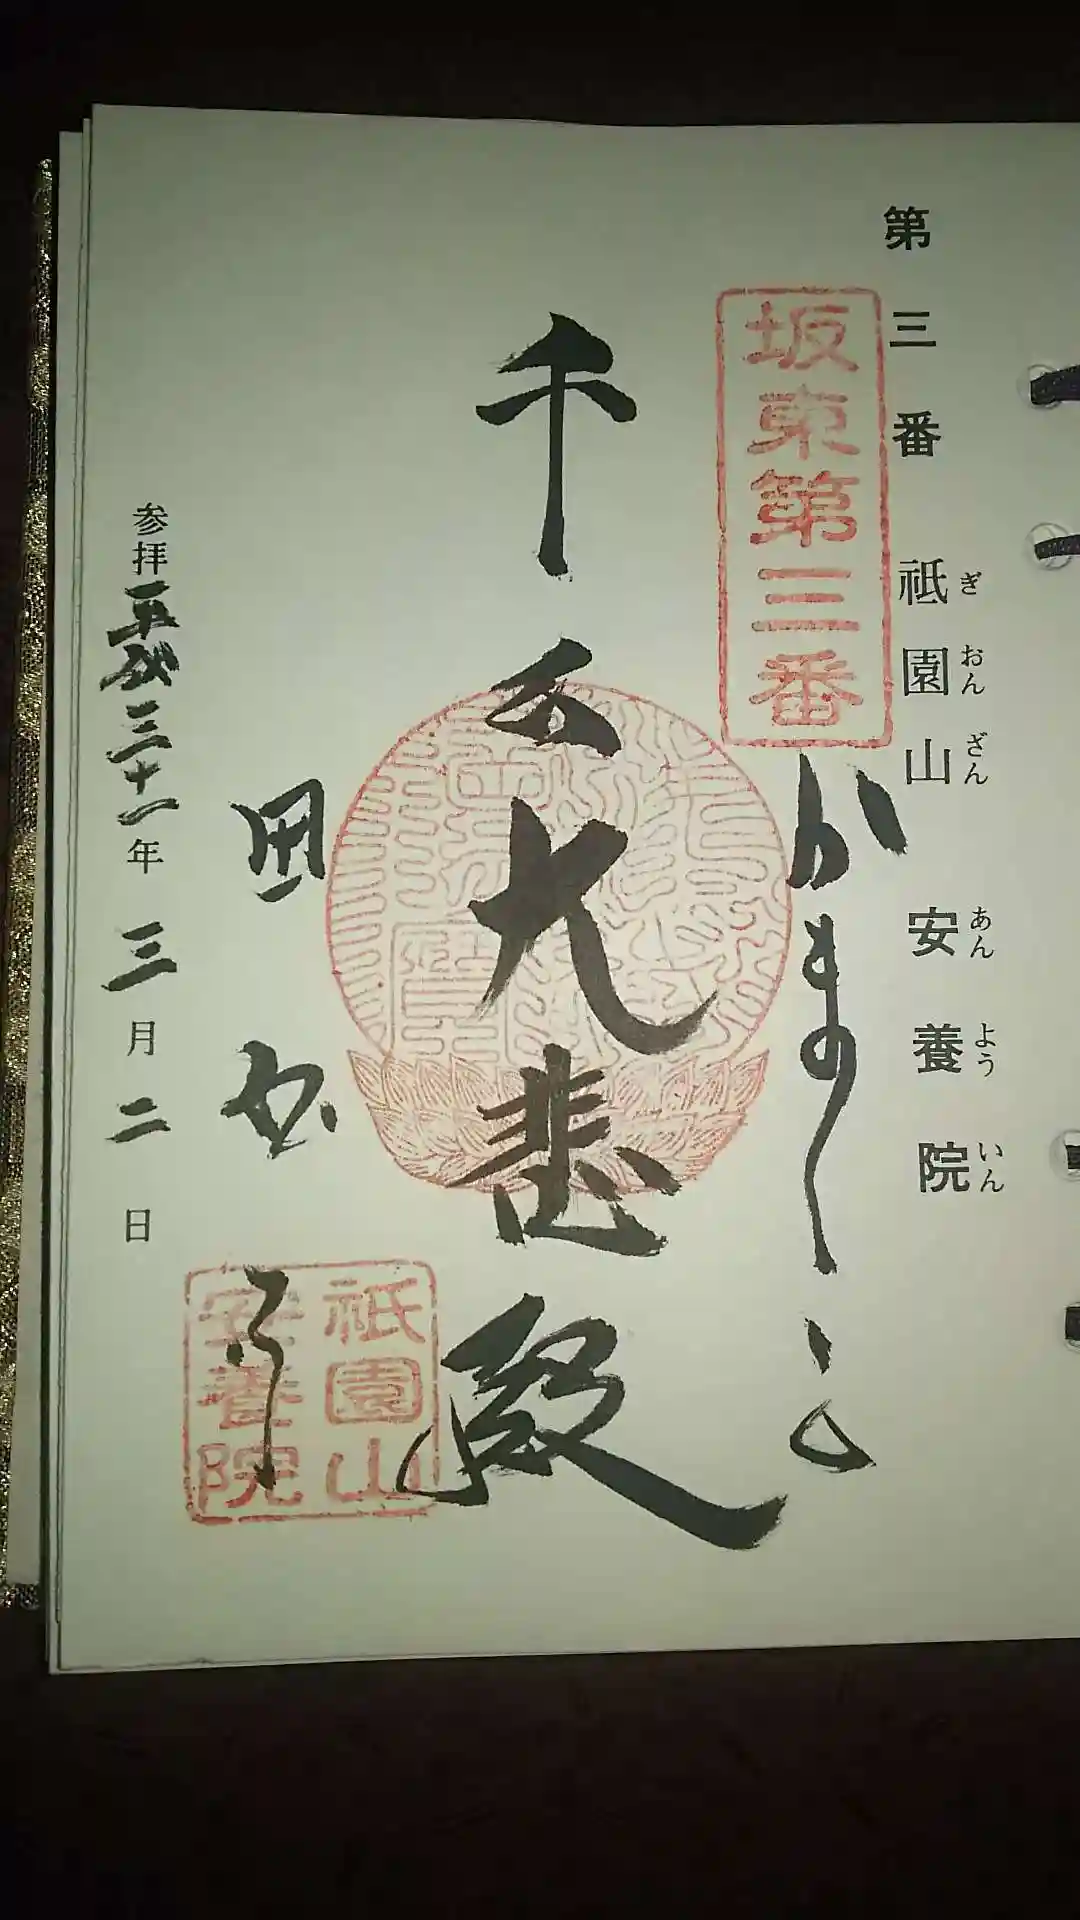 第三番 祇園山 安養院
ぎおんざん あんよういん
坂東第三番
かまくら
千手大悲殿
田代寺
祇園山
安養院
参拝平成三十一年三月二日